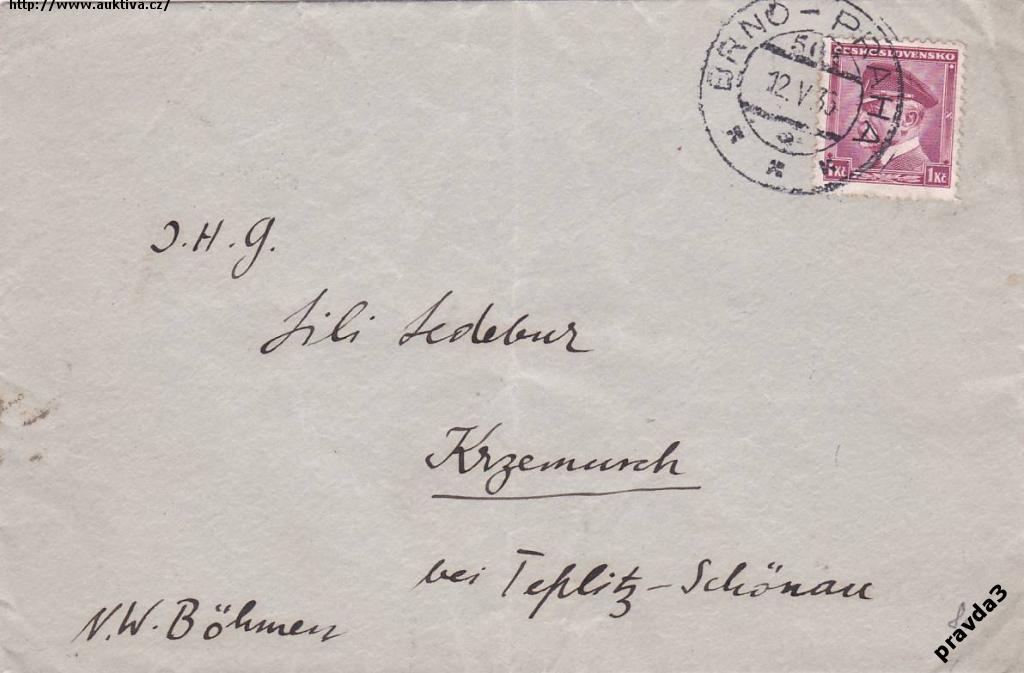 http://www.auktiva.cz/
BRNO - PRAHA
12.V.35
ČESKOSLOVENSKO
1Kč 1Kč
J.H.G.
Lili Ledebur
Krzemusch
bei Teplitz-Schönau
N.W. Böhmen
pravda3